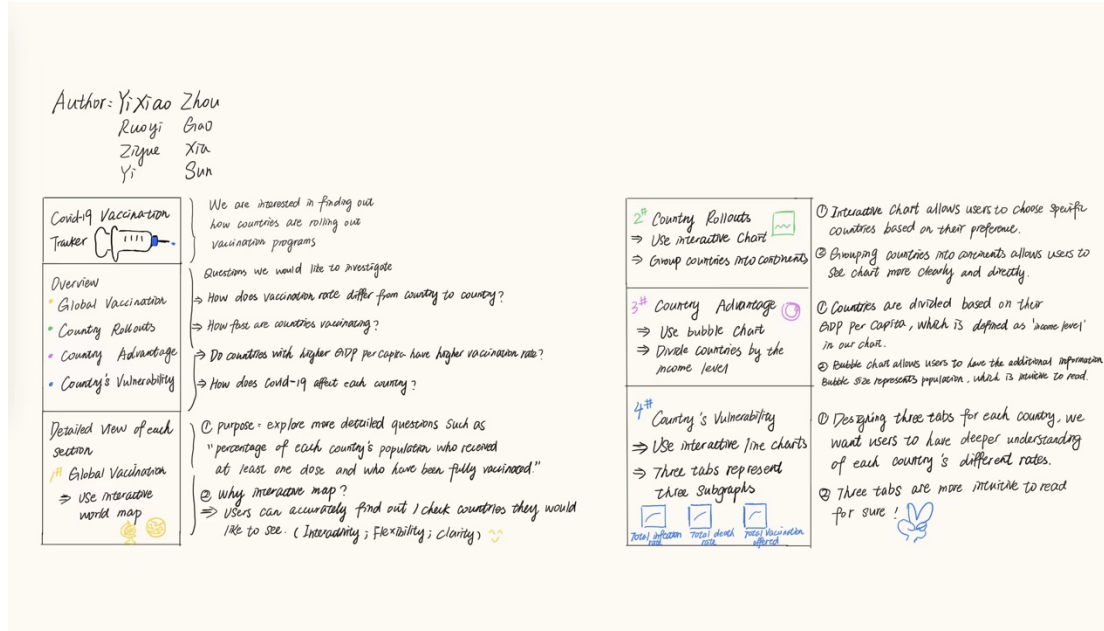 Author: YiXiao Zhou
Ruoyi Gao
Ziyue Xia
Yi Sun
Covid-19 Vaccination
Tracker
We are interested in finding out
how countries are rolling out
vaccination programs
Overview
• Global Vaccination
• Country Rollouts
• Country Advantage
• Country's Vulnerability
Questions we would like to investigate
⇒ How does vaccination rate differ from country to country?
⇒ How fast are countries vaccinating?
⇒ Do countries with higher GDP per capita have higher vaccination rate?
⇒ How does Covid-19 affect each country?
Detailed view of each
section
1# Global Vaccination
⇒ Use interactive
world map
① purpose = explore more detailed questions such as
"percentage of each country's population who received
at least one dose and who have been fully vaccinated."
② Why interactive map?
⇒ Users can accurately find out / check countries they would
like to see. (Interactivity; Flexibility; Clarity)
2# Country Rollouts
⇒ Use interactive Chart
⇒ Group countries into continents
① Interactive Chart allows users to choose specific
countries based on their preference.
② Grouping countries into continents allows users to
see chart more clearly and directly.
3# Country Advantage
⇒ Use bubble Chart
⇒ Divide countries by the
income level
① Countries are divided based on their
GDP per Capita, which is defined as 'income level'
in our chart.
② Bubble chart allows users to have the additional information
Bubble size represents population, which is intuitive to read.
4# Country's Vulnerability
⇒ Use interactive line charts
⇒ Three tabs represent
three subgraphs
Total infection rate
Total death rate
Total Vaccination offered
① Designing three tabs for each country, we
want users to have deeper understanding
of each country's different rates.
② Three tabs are more intuitive to read
for sure!